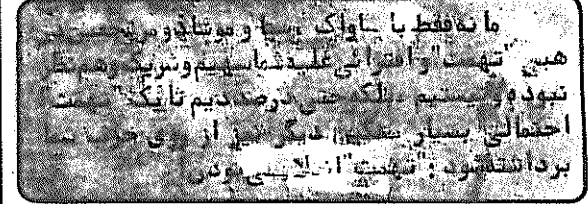 ما نه فقط با ساواک و سیا و موساد و مرتجعین در
هیچ "تهمت" و افترائی علیه شما سهیم و شریک و هم نظر
نبوده و نیستیم بلکه حتی درصددیم تا یک "تهمت"
احتمالی بسیار دیگر نیز از روی شما
برداشته شود: "تهمت" بودن